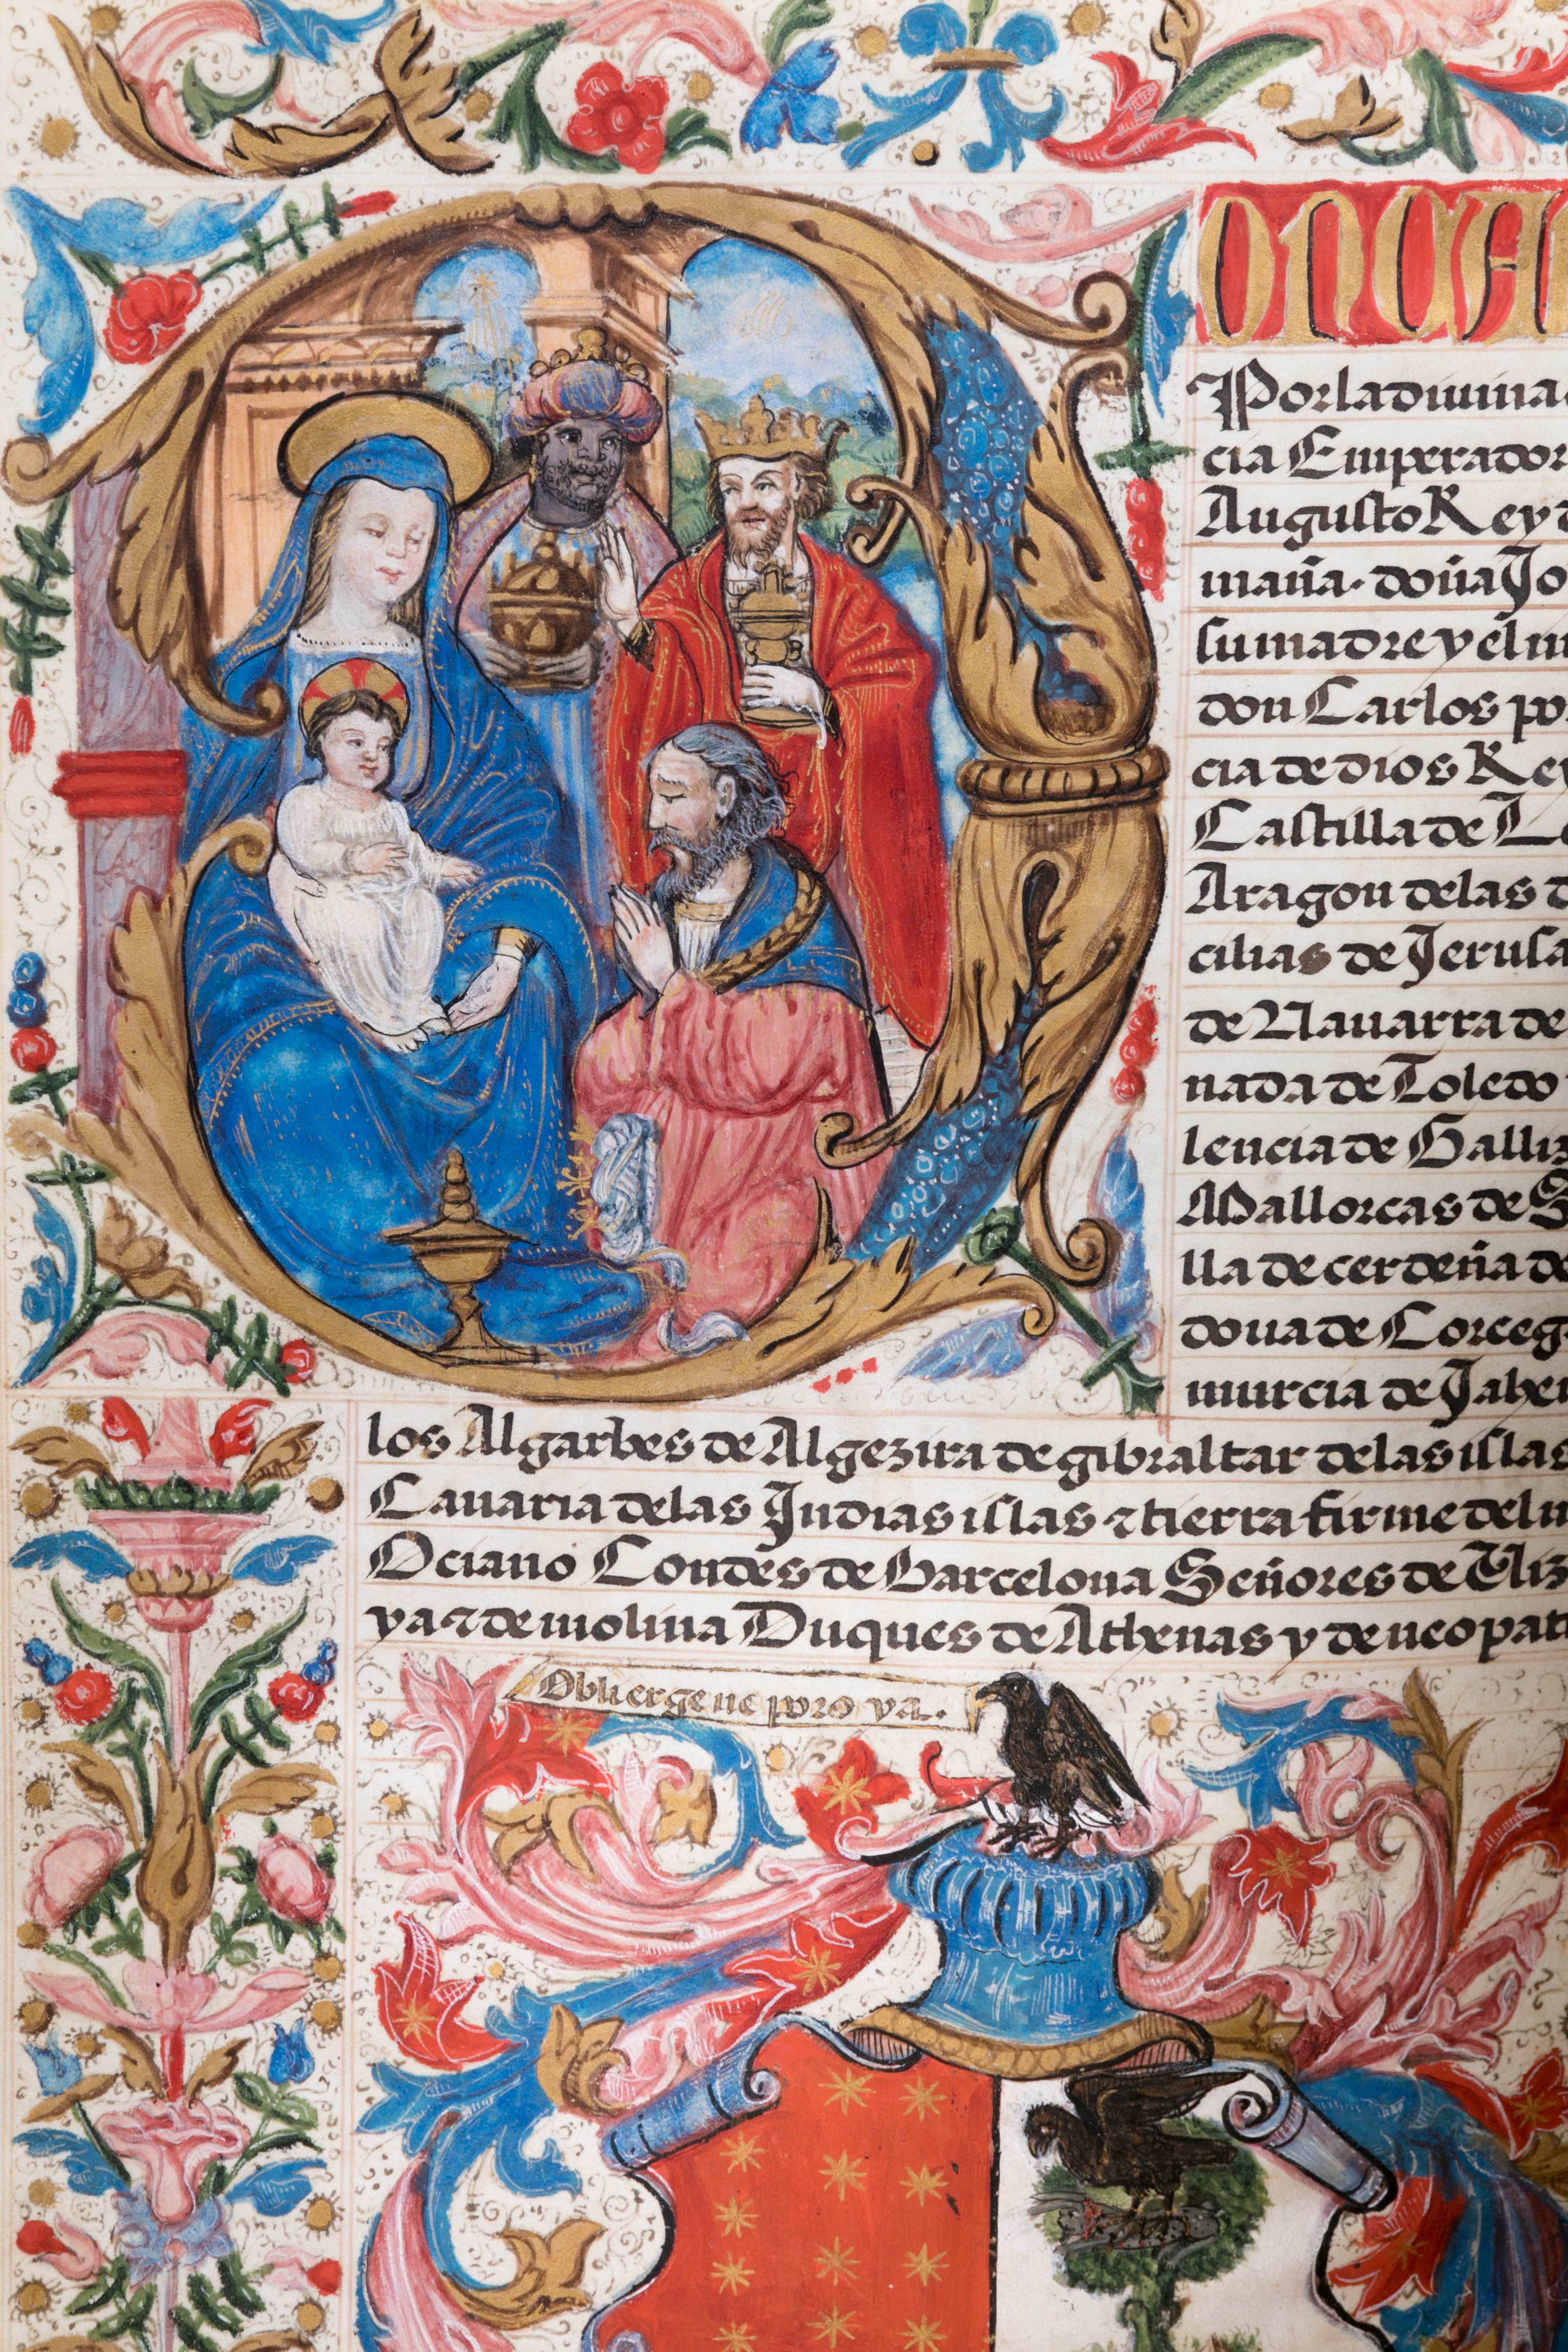 DONCA
Por la diuina
cia Emperador
Augusto Rey
maña. doña Jo
su madre y el m
don Carlos por
cia de dios Rey
Castilla de Le
Aragon de las d
cilias de Jerusa
de Nauarra de
nada de Toledo
lencia de Galliz
Mallorcas de S
lla de cerdeña de
doua de Corceg
murcia de Jahen
los Algarbes de Algezira de gibraltar de las islas
Canaria de las Indias islas ⁊ tierra firme del m
Oceano Condes de Barcelona Señores de Viz
ya ⁊ de molina Duques de Athenas y de neopat